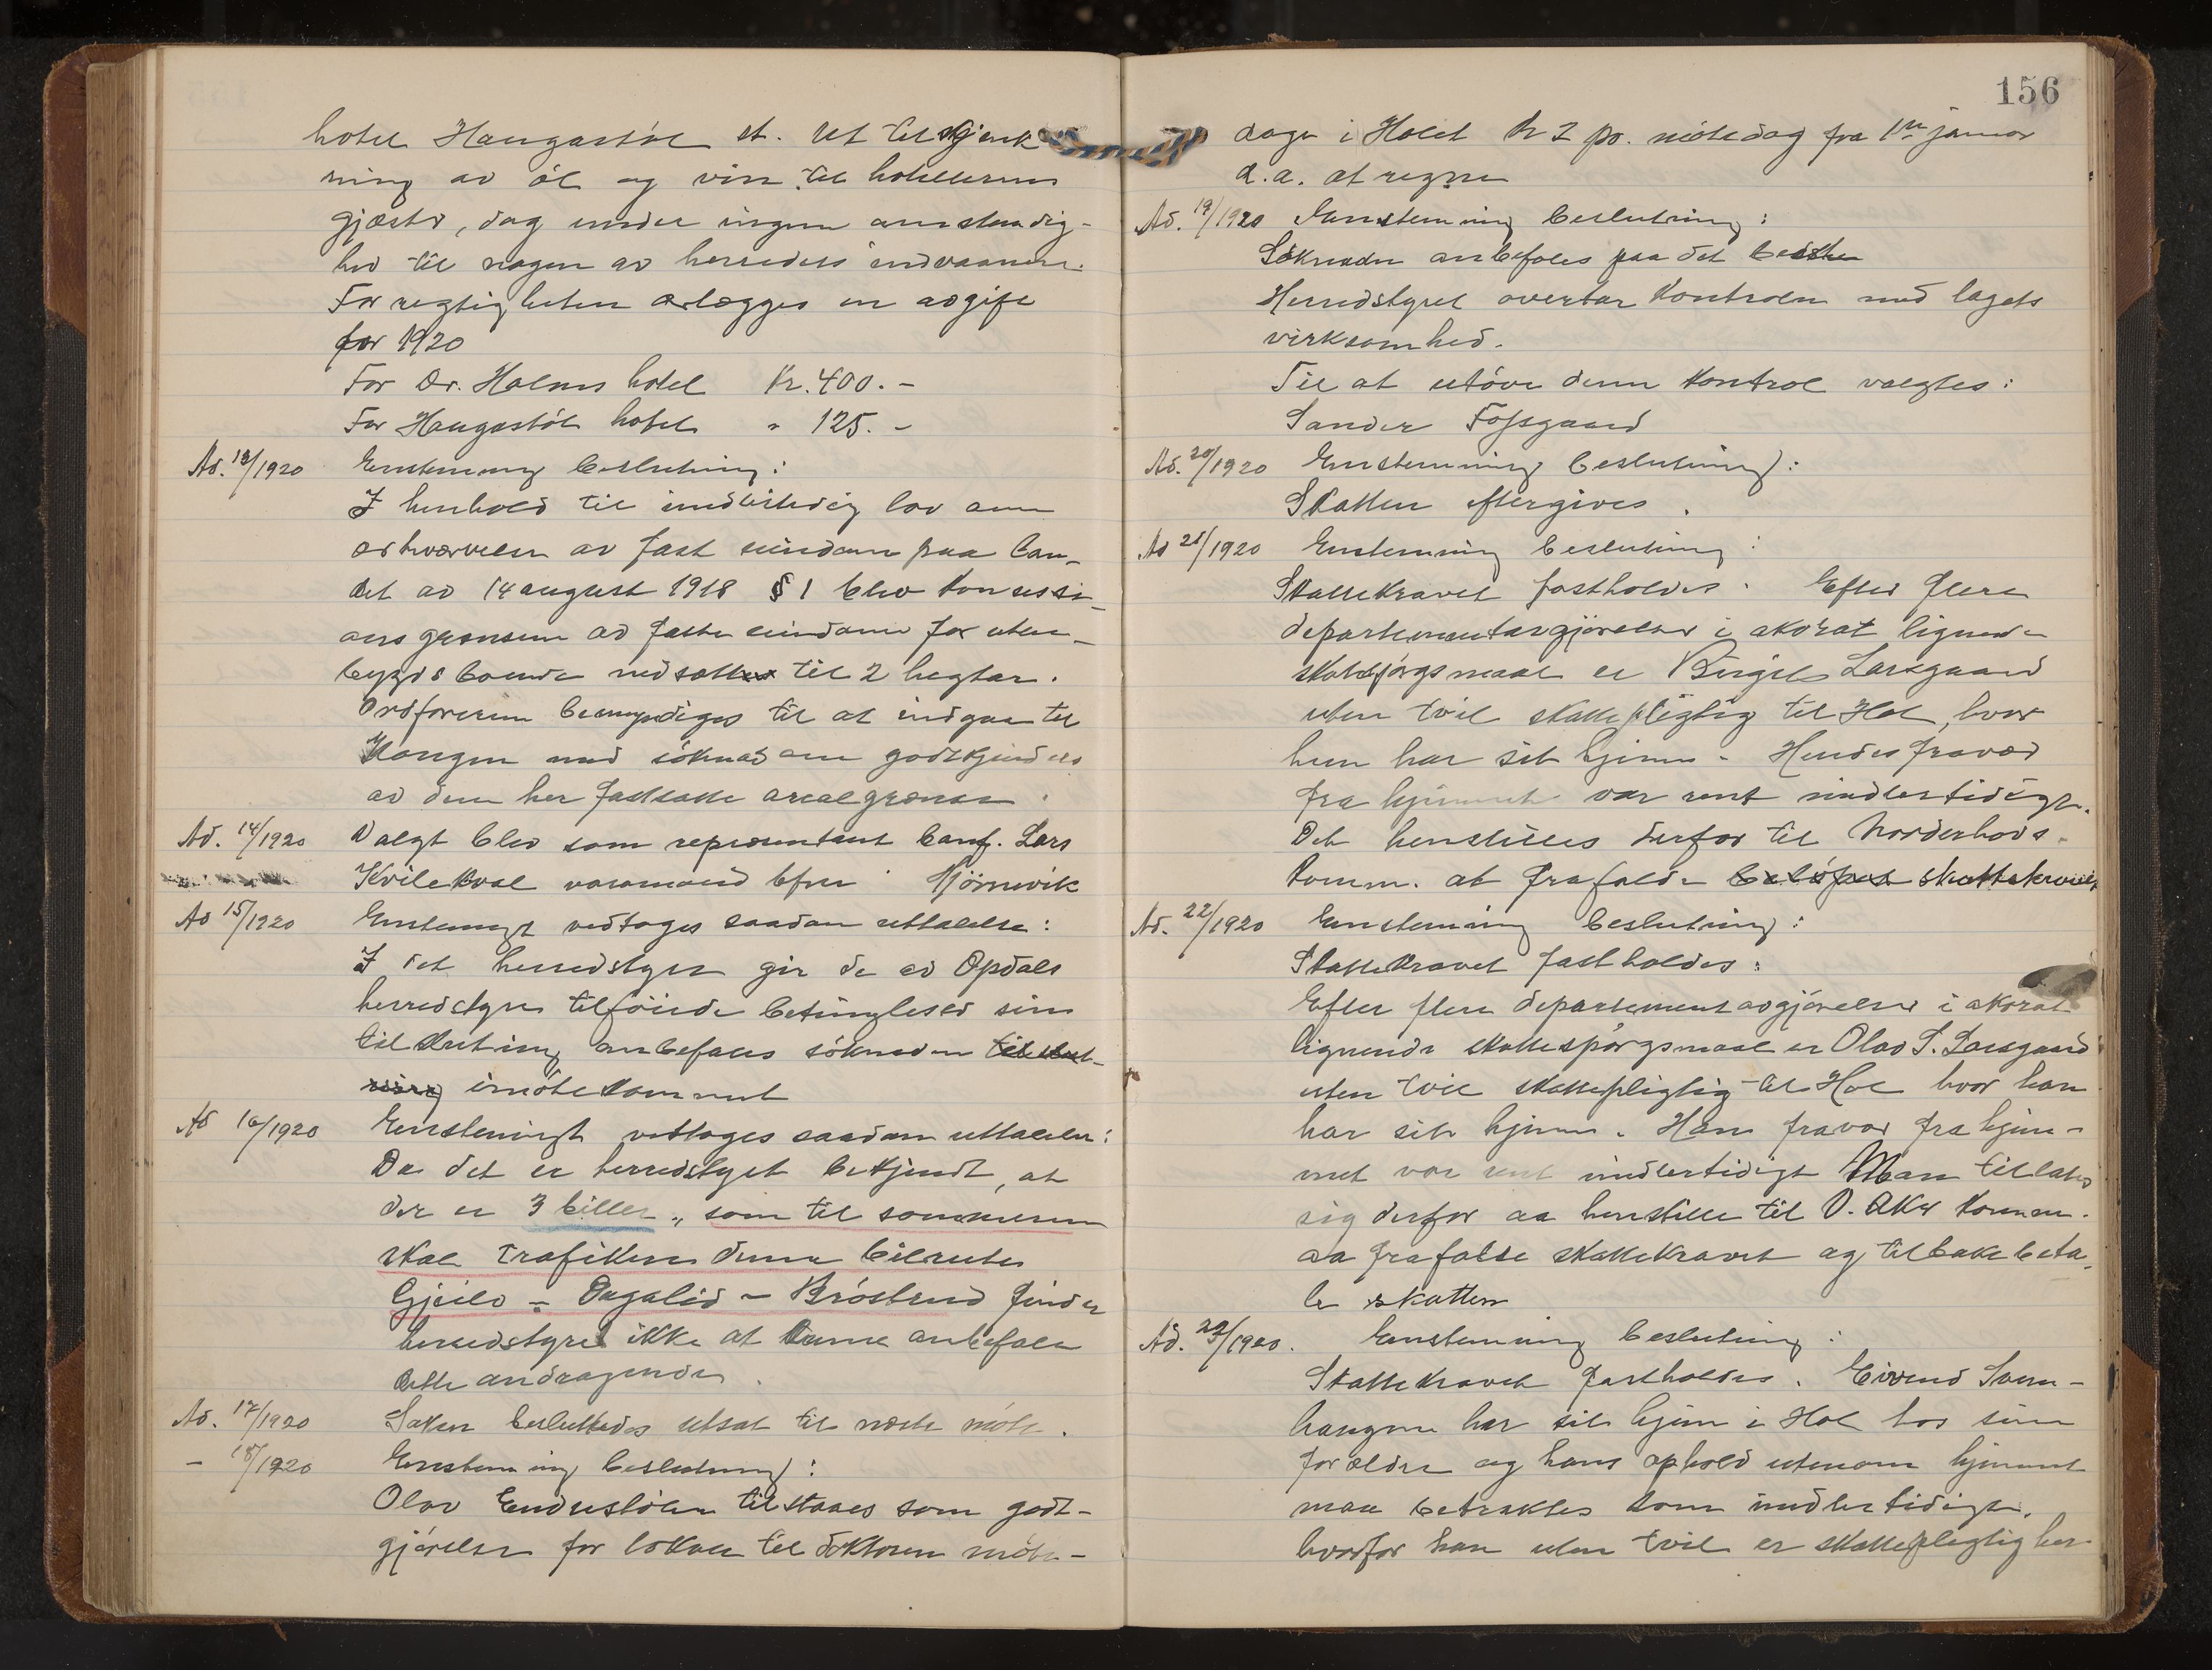 hotel Haugastöl st. ret til skjenk
ning av öl og vin til hotellernes
gjæster, dog under ingen omstendig-
hed til nogen av herredets indvaanere.
For regtigheten erlægges en avgift
for 1920
For Dr. Holms hotel Kr. 400.-
For Haugastöl hotel " 125.-
Ad. 13/1920 Enstemmig beslutning:
I henhold til midlertidig lov om
erhvervelse av fast eiendom paa lan-
det av 14 august 1918 § 1 blev konsessi-
ons grænsen av faste eiendomme for uten-
bygdsboende nedsatt til 2 hegtar.
Ordføreren bemyndiges til at indgaa til
Kongen med söknad om godkjendelse
av den her fastsatte arealgrænse.
Ad. 14/1920 Valgt blev som representant banf. Lars
Kvilekval varamand Efr. Njörnevik
Ad 15/1920 Enstemmigt vedtoges saadan uttalelse:
I det herredstyret gir de av Opdals
herredstyre tilföiede betingelser sin
tilslutning anbefales söknaden tilslut-
ning imötekommet
Ad 16/1920 Enstemmigt vedtoges saadan uttalelse:
Da det er herredstyret bekjendt, at
der er 3 biller, som til sommeren
skal trafikere denne bilrute
Gjeilo - Dagalid - Bröstrud finder
herredstyret ikke at kunne anbefale
dette andragende.
Ad. 17/1920 Saken besluttedes utsat til næste möte.
- 18/1920 Enstemmig beslutning:
Olav Endrestölen tilstaaes som godt-
gjörelse for lokale til doktorens möte-
156
dage i Holet kr 2 pr. mötedag fra 1ste januar
d.a. at regne
Ad. 19/1920 Enstemmig beslutning:
Söknaden anbefales paa det bedste
Herredstyret overtar kontrolen med lagets
virksomhed.
Til at utöve denne kontrol valgtes:
Sander Fossgaard
Ad. 20/1920 Enstemmig beslutning:
Skatten eftergives.
Ad 21/1920 Enstemmig beslutning:
Skattekravet fastholdes. Efter flere
departementavgjörelser i akorat lignende
skatespörgsmaal er Birgit Larsgaard
uten tvil skattepligtig til Hol, hvor
hun har sit hjem. Hendes fravær
fra hjemmet var rent midlertidigt.
Det henstilles derfor til Norderhovs
komm. at frafalde belöpet skattekravet
Ad. 22/1920 Enstemmig beslutning:
Skattekravet fastholdes:
Efter flere departementsavgjörelser i akorat
lignende skattespörgsmaal er Olav S. Larsgaard
uten tvil skattepligtig til Hol hvor han
har sit hjem. Hans fravær fra hjem-
met var rent midlertidigt Man tillater
sig derfor aa henstille til V. Aker komm.
aa frafalde skattekravet og tilbakebeta-
le skatten
Ad. 23/1920. Enstemmig beslutning:
Skattekravet fastholdes. Eivind Svein-
haugen har sit hjem i Hol hos sine
forældre og hans ophold utenom hjemmet
maa betraktes som midlertidigt,
hvorfor han uten tvil er skattepligtig her